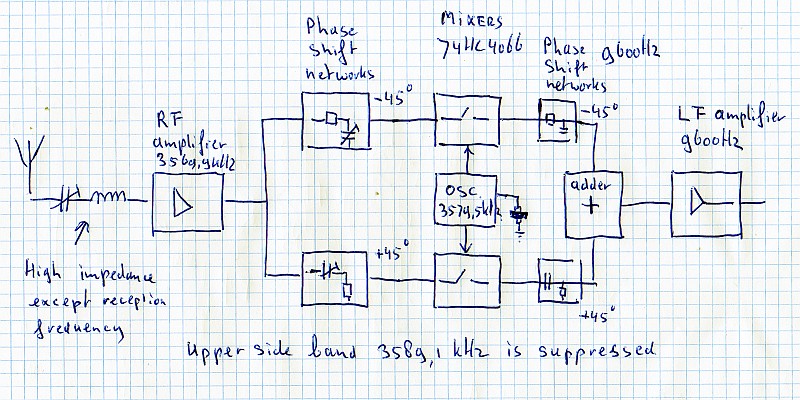 Phase
Shift
networks
-45°
MiXERS
74HC4066
Phase 9600Hz
Shift
networks
-45°
RF
amplifier
3569,9kHz
LF amplifier
9600Hz
OSC.
3579,5kHz
adder
+
+45°
+45°
High impedance
except reception
frequency
Upper side band 3589,1 kHz is suppressed